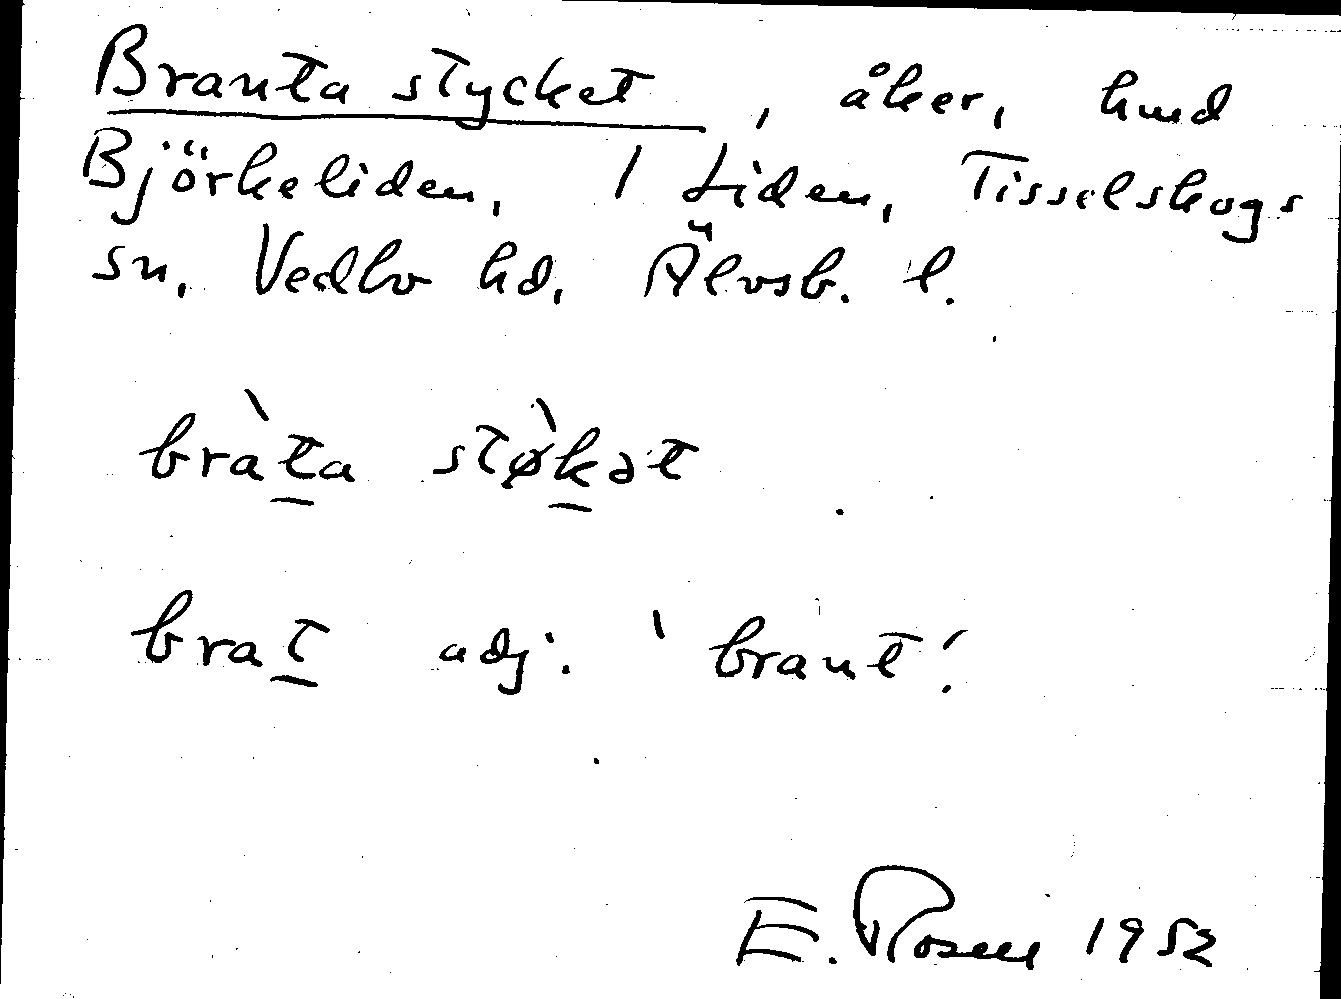 Branta stycket, åker, hmd
Björkeliden, 1 Liden, Tisselskogs
sn, Vedbo hd, Älvsb. l.
bràt̲a stø̀k̲ət
brat̲ adj. 'brant'.
E. Rosell 1952